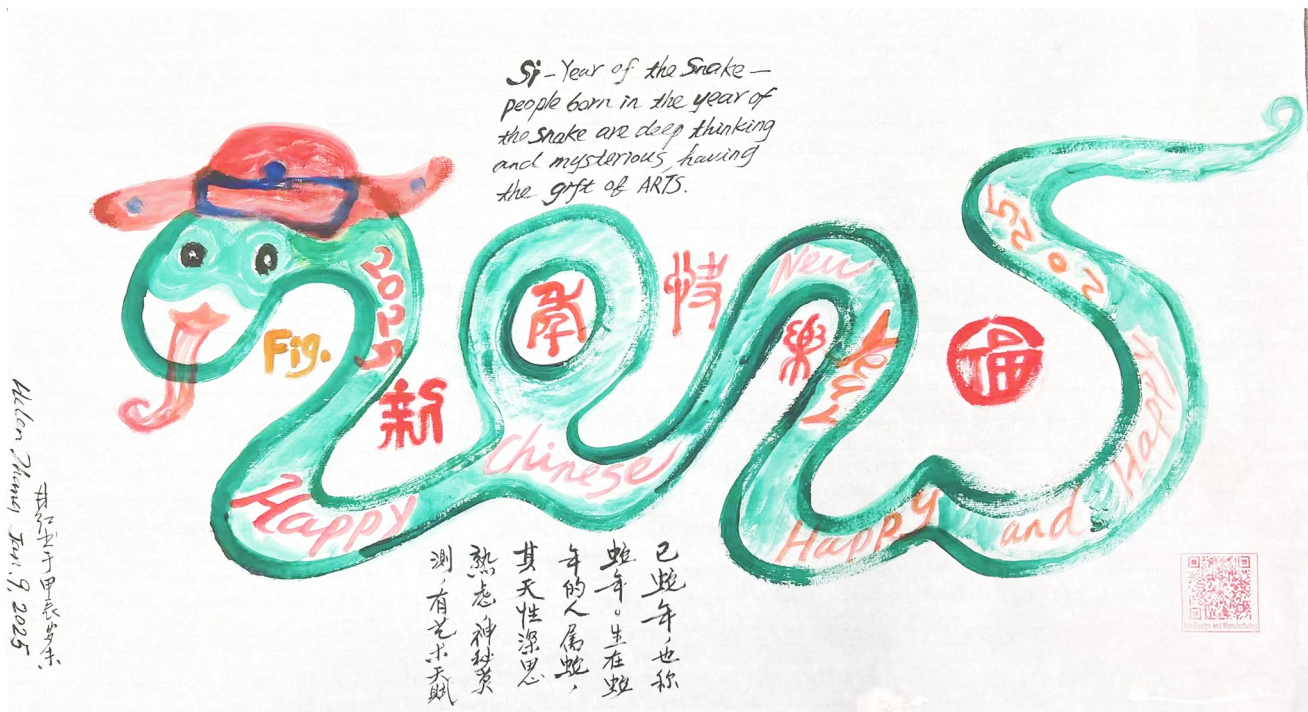 Si – Year of the Snake –
people born in the year of
the snake are deep thinking
and mysterious, having
the gift of ARTS.
2025
Fig.
新
年
快
樂
福
Happy
Chinese
New
Year
Happy
and
Happy
2025
巳蛇年，也称
蛇年。生在蛇
年的人属蛇，
其天性深思
熟虑，神秘莫
测，有艺术天赋
甲辰岁末
Jan. 9, 2025